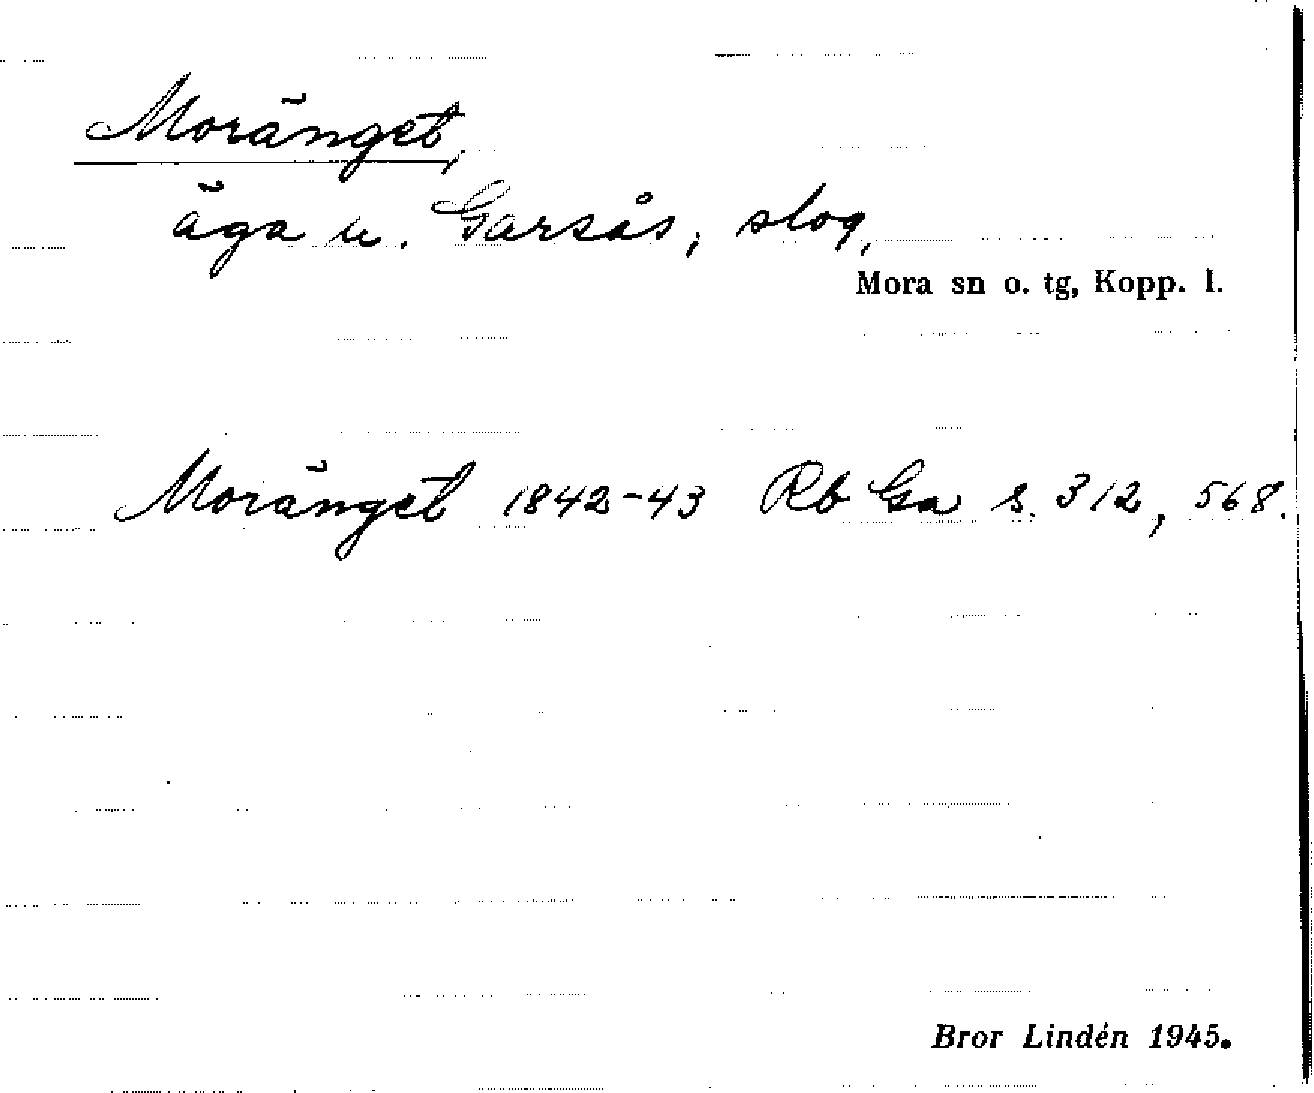 Moränget,
äga u. Garsås, slog,
Mora sn o. tg, Kopp. l.
Moränget 1842-43 Rb Ga s. 312, 568.
Bror Lindén 1945.